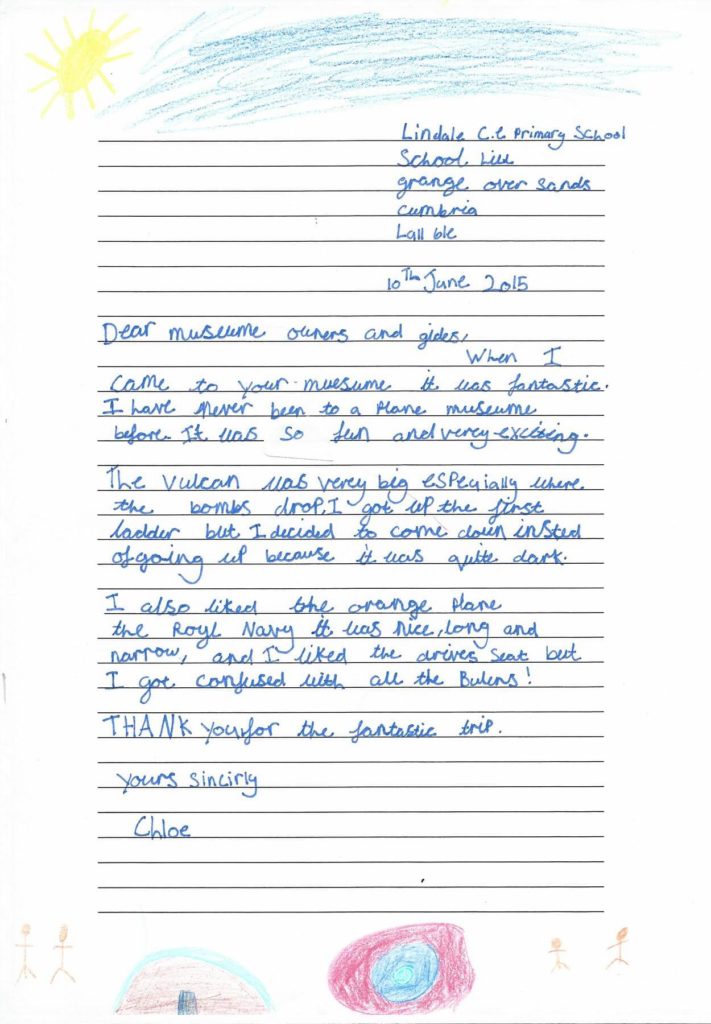 Lindale C.E Primary School
School hill
grange over sands
cumbria
La11 6le
10Th June 2015
Dear museume owners and gides,
When I
came to your muesume it was fantastic.
I have never been to a plane museume
before. It was so fun and verey exciting.
The Vulcan was verey big especially where
the bombs drop, I got up the first
ladder but I decided to come down insted
of going up because it was quite dark.
I also liked the orange plane
the Royl Navy it was nice, long and
narrow, and I liked the drives seat but
I got confused with all the Butens!
THANK you, for the fantastic trip.
yours sincirly
Chloe